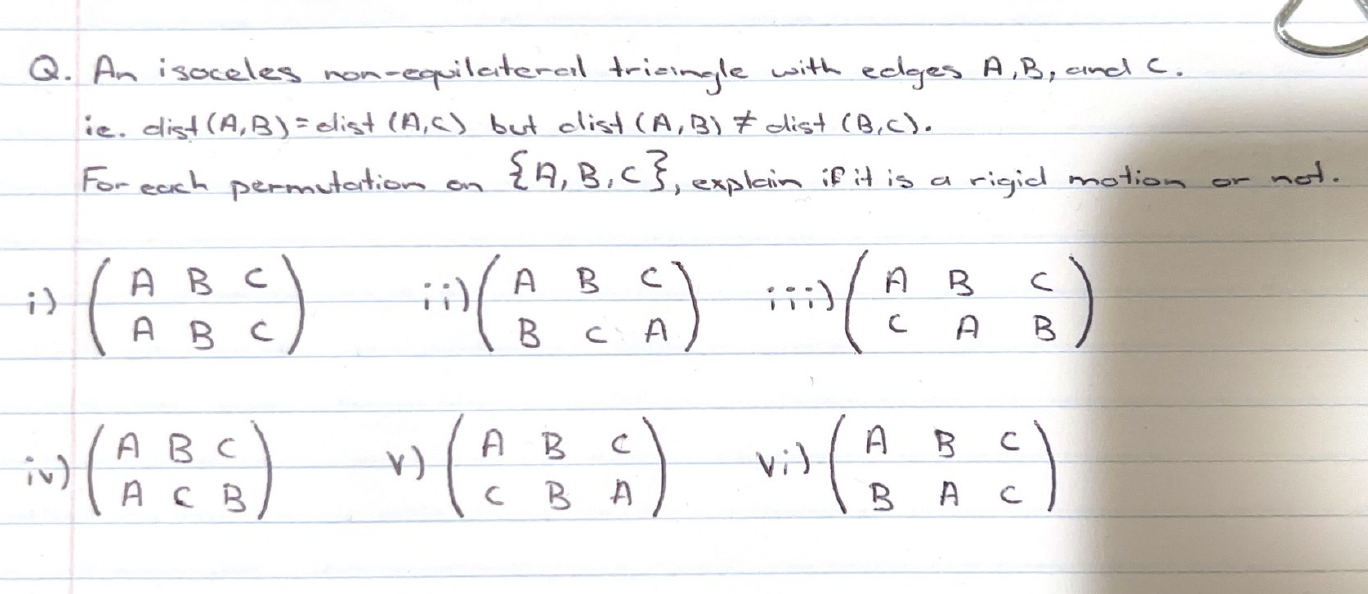 Q. An isoceles non-equilateral triangle with edges A, B, and C.
ie. dist (A,B) = dist (A,C) but dist (A,B) ≠ dist (B,C).
For each permutation on {A, B, C}, explain if it is a rigid motion or not.
i) ( A B C ) ii) ( A B C ) iii) ( A B C )
( A B C ) ( B C A ) ( C A B )
iv) ( A B C ) v) ( A B C ) vi) ( A B C )
( A C B ) ( C B A ) ( B A C )